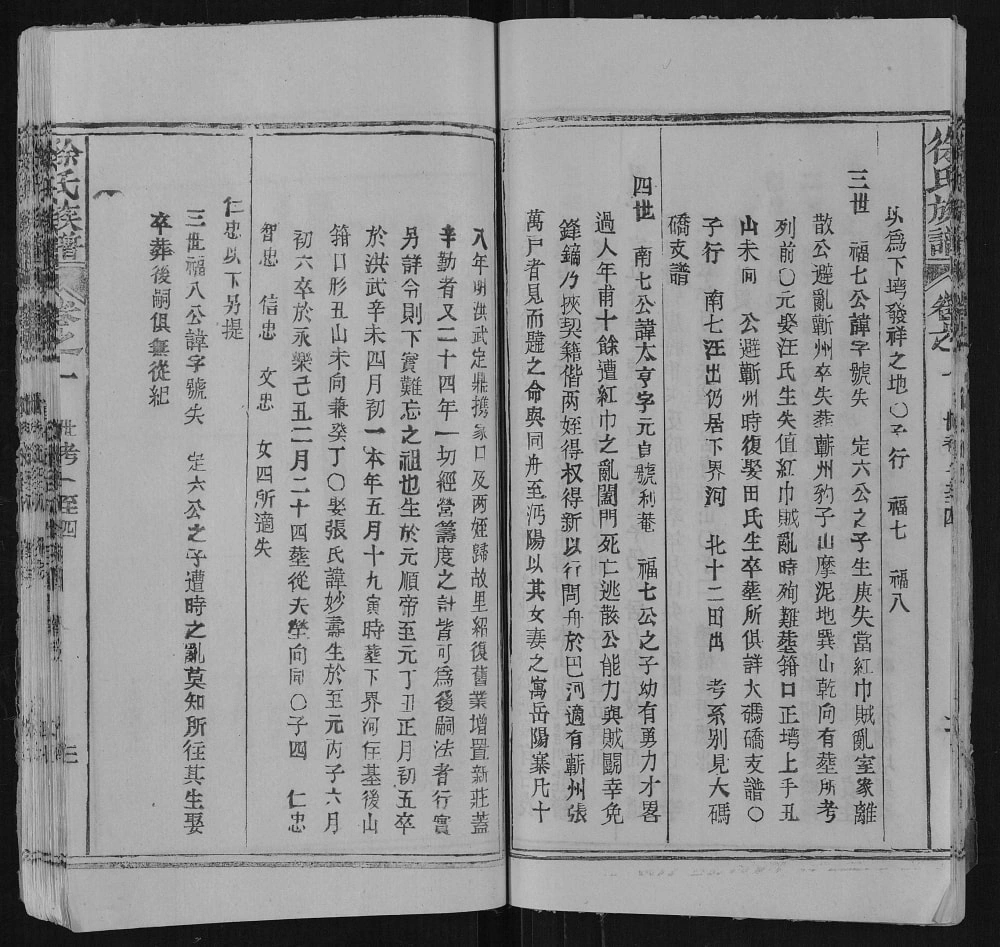 徐氏族譜
卷之一
以爲下塆發祥之地〇子行　福七　福八
三世　福七公諱字號失　定六公之子生庚失當紅巾賊亂室家離
散公避亂蘄州卒失葬蘄州豹子山摩泥地巽山乾向有葬所考
列前〇元娶汪氏生失值紅巾賊亂時殉難葬箝口正塆上手丑
山未向　公避蘄州時復娶田氏生卒葬所俱詳大碼礄支譜〇
子行　南七汪出仍居下界河　北十二田出　考系別見大碼
礄支譜
四世　南七公諱太亨字元自號利菴　福七公之子幼有勇力才畧
過人年甫十餘遭紅巾之亂闔門死亡逃散公能力與賊鬭幸免
鋒鏑乃挾契籍偕两姪得权得新以行問舟於巴河適有蘄州張
萬戸者見而韙之命與同舟至沔陽以其女妻之寓岳陽寨凡十
八年明洪武定鼎携家口及两姪歸故里紹復舊業增置新莊蓋
辛勤者又二十四年一切經營籌度之計皆可爲後嗣法者行實
另詳令則下實難忘之祖也生於元順帝至元丁丑正月初五卒
於洪武辛未四月初一本年五月十九寅時葬下界河住基後山
箝口形丑山未向兼癸丁〇娶張氏諱妙壽生於至元丙子六月
初六卒於永樂己丑二月二十四葬從夫塋向同〇子四　仁忠
智忠　信忠　文忠　女四所適失
仁忠以下另提
三世福八公諱字號失　定六公之子遭時之亂莫知所往其生娶
卒葬後嗣俱無從紀
徐氏族譜
卷之一
世考一至四
三